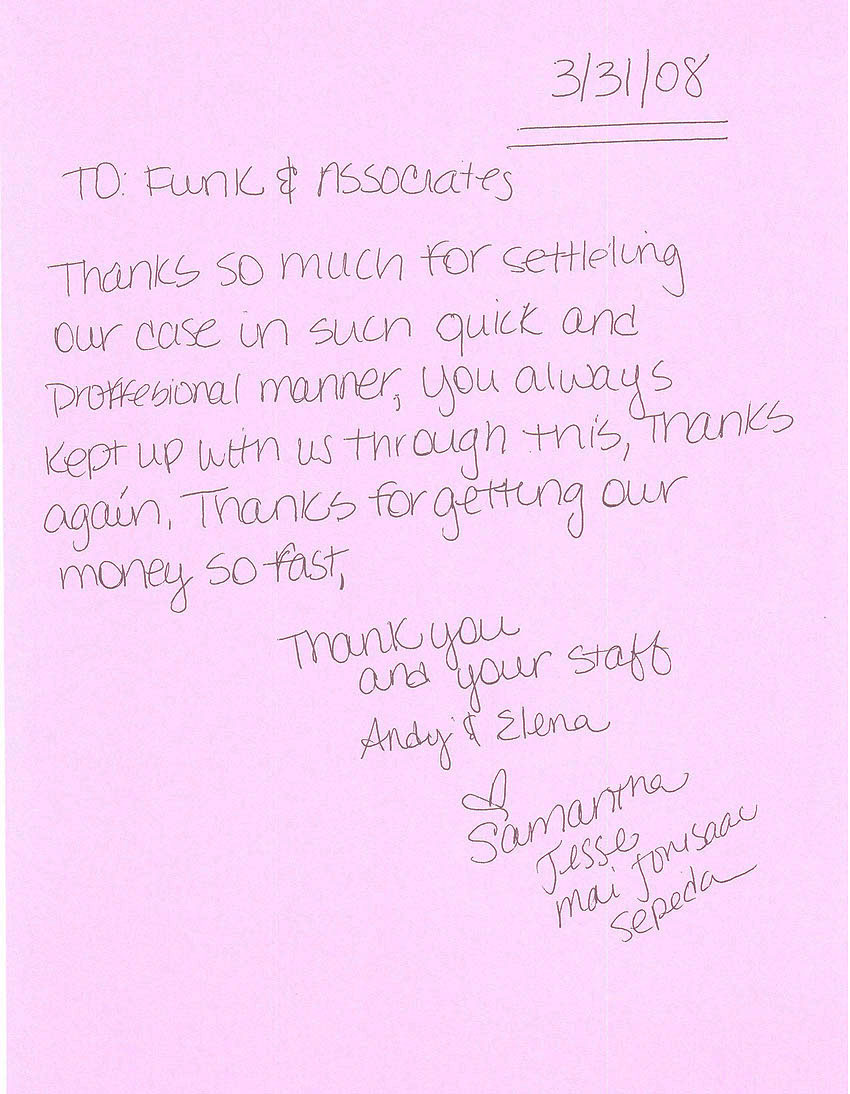 3/31/08
TO: Funk & Associates
Thanks so much for settleling
our case in such quick and
Proffesional manner, you always
kept up with us through this, Thanks
again, Thanks for getting our
money so fast,
Thank you
and your staff
Andy & Elena
Samantha
Jesse
mai
sepeda